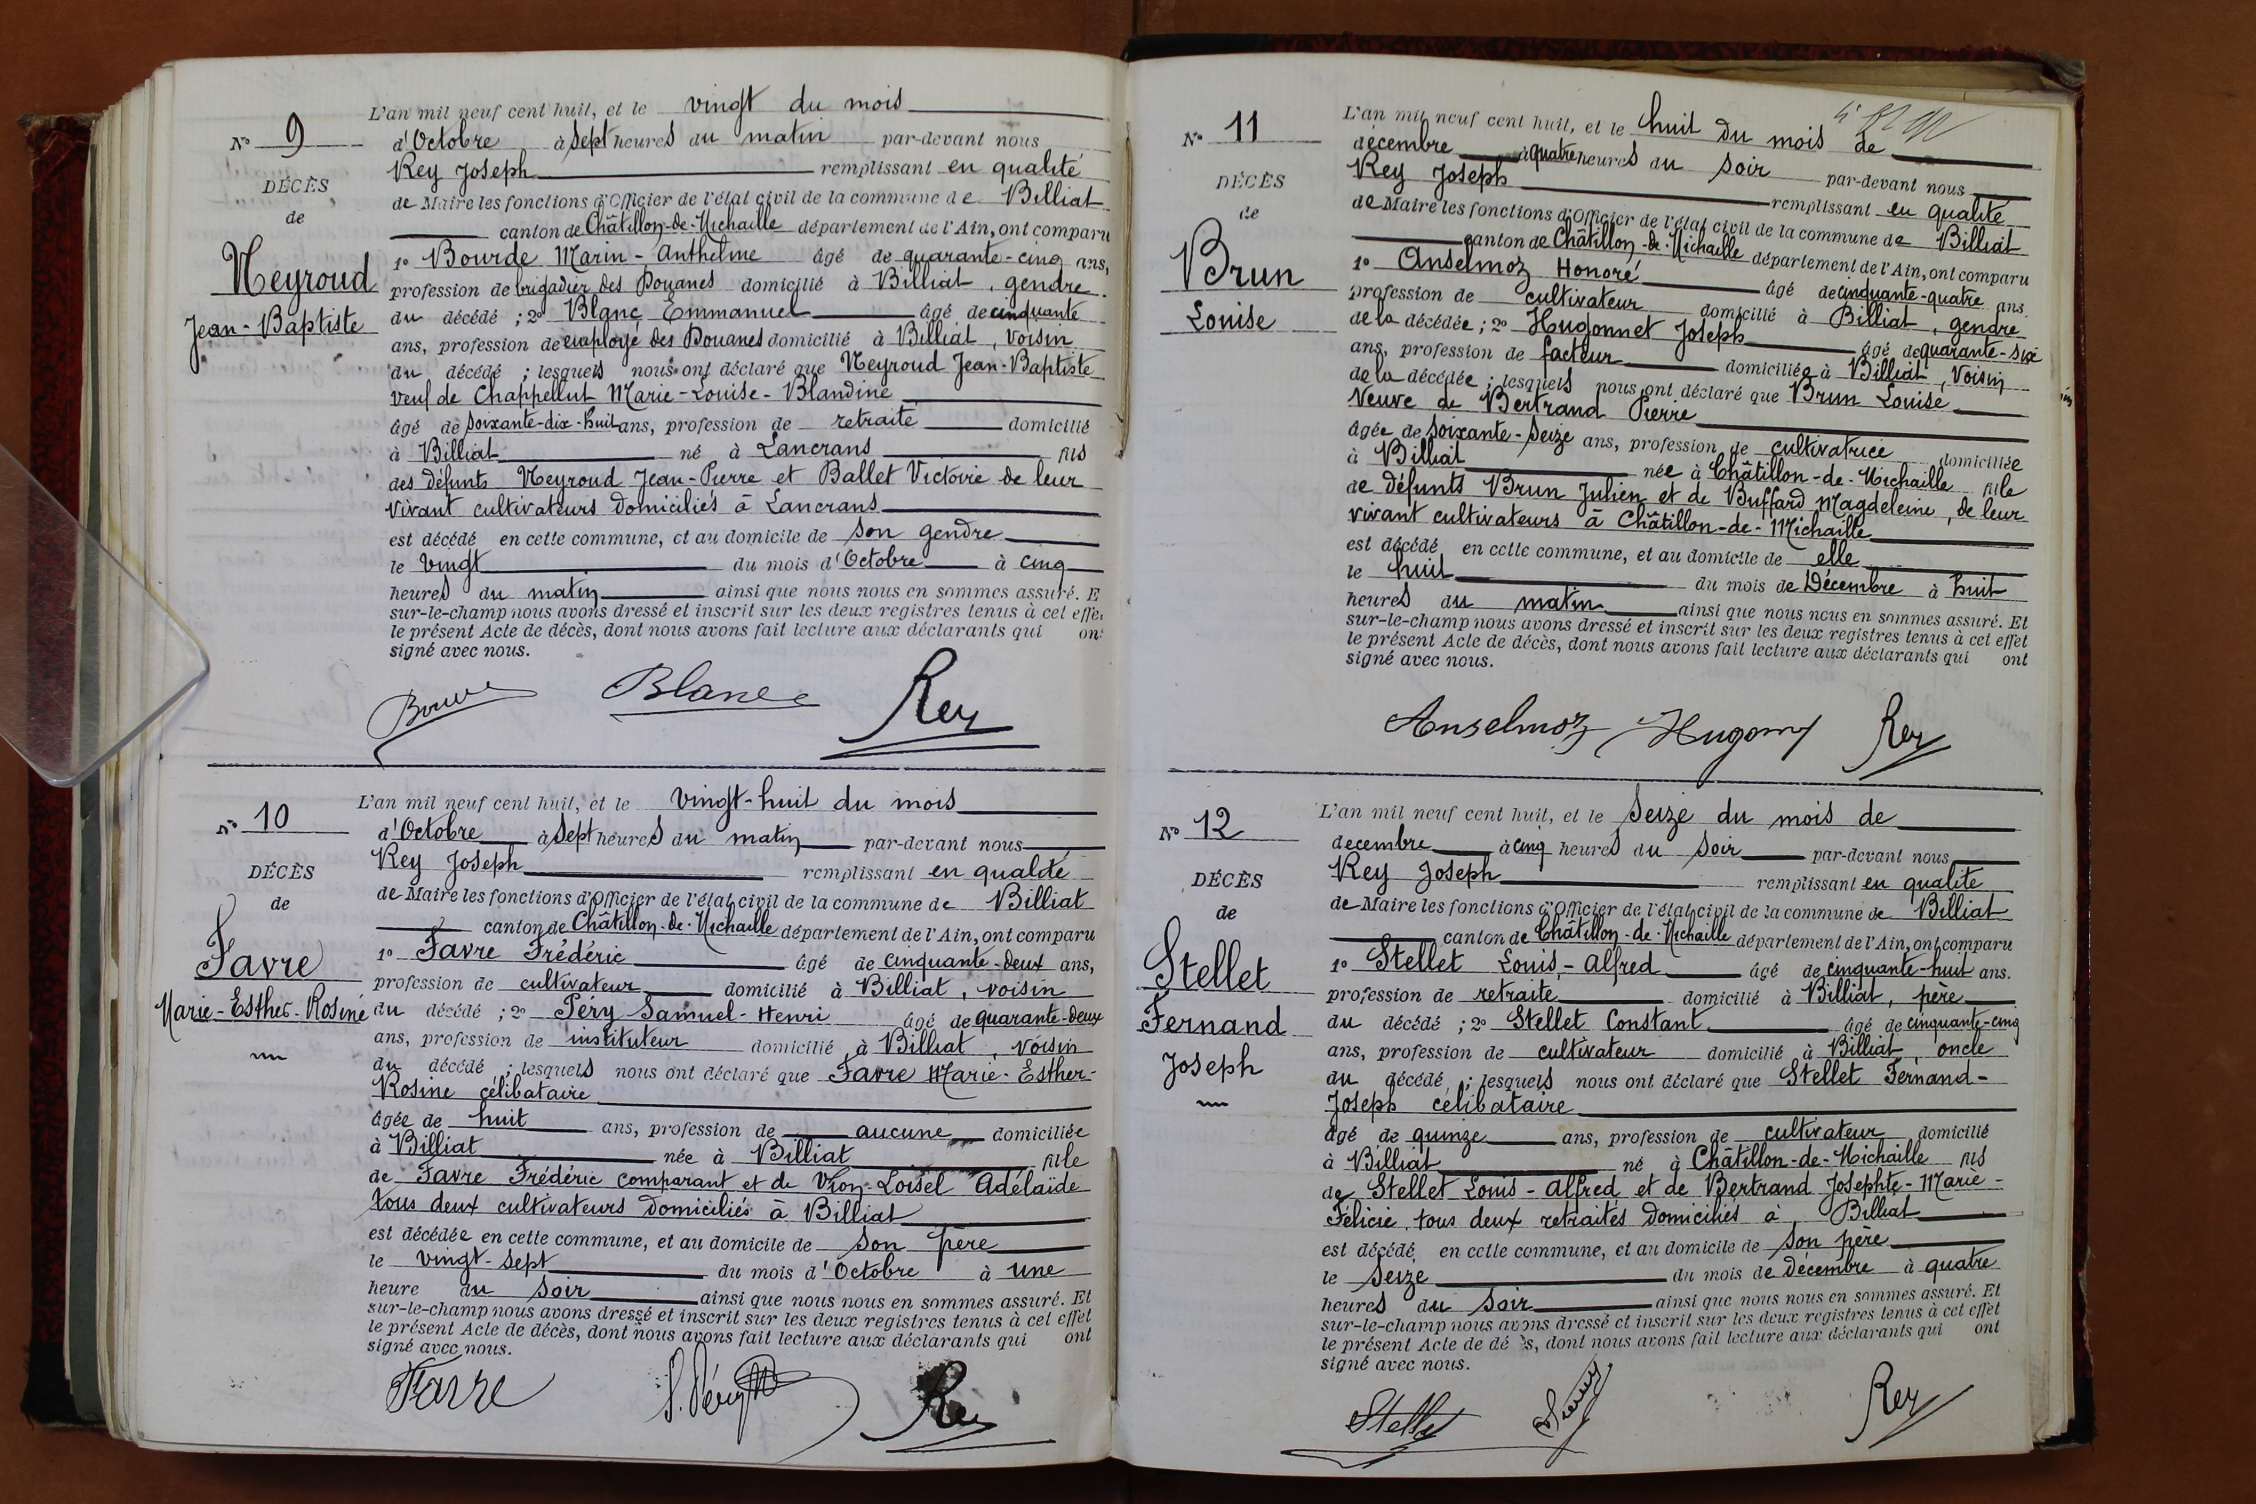 L'an mil neuf cent huit, et le vingt du mois
No 9
d'Octobre à sept heures du matin par-devant nous
Rey Joseph remplissant en qualité
DÉCÈS
de Maire les fonctions d'Officier de l'état civil de la commune de Billiat
de
canton de Châtillon-de-Michaille département de l'Ain, ont comparu
Neyroud
1o Bourde Marin-Anthelme âgé de quarante-cinq ans,
profession de brigadier des Douanes domicilié à Billiat, gendre
Jean-Baptiste
du décédé ; 2o Blanc Emmanuel âgé de cinquante
ans, profession de employé des Douanes domicilié à Billiat, voisin
du décédé ; lesquels nous ont déclaré que Neyroud Jean-Baptiste
veuf de Chappellut Marie-Louise-Blandine
âgé de soixante-dix-huit ans, profession de retraité domicilié
à Billiat né à Lancrans fils
des défunts Neyroud Jean-Pierre et Ballet Victoire de leur
vivant cultivateurs domiciliés à Lancrans
est décédé en cette commune, et au domicile de son gendre
le vingt du mois d'Octobre à cinq
heures du matin ainsi que nous nous en sommes assuré. E
sur-le-champ nous avons dressé et inscrit sur les deux registres tenus à cet effe
le présent Acte de décès, dont nous avons fait lecture aux déclarants qui on
signé avec nous.
Blanc Rey
L'an mil neuf cent huit, et le vingt-huit du mois
No 10
d'Octobre à sept heures du matin par-devant nous
Rey Joseph remplissant en qualité
DÉCÈS
de Maire les fonctions d'Officier de l'état civil de la commune de Billiat
de
canton de Châtillon-de-Michaille département de l'Ain, ont comparu
Favre
1o Favre Frédéric âgé de cinquante-deux ans,
profession de cultivateur domicilié à Billiat, voisin
Marie-Esther-Rosine
du décédé ; 2o Péry Samuel-Henri âgé de quarante-deux
ans, profession de instituteur domicilié à Billiat, voisin
du décédé ; lesquels nous ont déclaré que Favre Marie-Esther-
Rosine célibataire
âgée de huit ans, profession de aucune domiciliée
à Billiat née à Billiat fille
de Favre Frédéric comparant et de Vion-Loisel Adélaïde
tous deux cultivateurs domiciliés à Billiat
est décédée en cette commune, et au domicile de son père
le vingt-sept du mois d'Octobre à une
heure du soir ainsi que nous nous en sommes assuré. Et
sur-le-champ nous avons dressé et inscrit sur les deux registres tenus à cet effet
le présent Acte de décès, dont nous avons fait lecture aux déclarants qui ont
signé avec nous.
Favre S. Péry Rey
L'an mil neuf cent huit, et le huit du mois de
No 11
décembre à quatre heures du soir par-devant nous
Rey Joseph remplissant en qualité
DÉCÈS
de Maire les fonctions d'Officier de l'état civil de la commune de Billiat
de
canton de Châtillon-de-Michaille département de l'Ain, ont comparu
Brun
1o Anselmoz Honoré âgé de cinquante-quatre ans
profession de cultivateur domicilié à Billiat, gendre
Louise
de la décédée ; 2o Hugonnet Joseph âgé de quarante-six
ans, profession de facteur domiciliée à Billiat, voisin
de la décédée ; lesquels nous ont déclaré que Brun Louise
Veuve de Bertrand Pierre
âgée de soixante-seize ans, profession de cultivatrice domiciliée
à Billiat née à Châtillon-de-Michaille fille
de défunts Brun Julien et de Buffard Magdeleine, de leur
vivant cultivateurs à Châtillon-de-Michaille
est décédé en cette commune, et au domicile de elle
le huit du mois de Décembre à huit
heures du matin ainsi que nous nous en sommes assuré. Et
sur-le-champ nous avons dressé et inscrit sur les deux registres tenus à cet effet
le présent Acte de décès, dont nous avons fait lecture aux déclarants qui ont
signé avec nous.
Anselmoz Rey
L'an mil neuf cent huit, et le seize du mois de
No 12
decembre à cinq heures du soir par-devant nous
Rey Joseph remplissant en qualité
DÉCÈS
de Maire les fonctions d'Officier de l'état civil de la commune de Billiat
de
canton de Châtillon-de-Michaille département de l'Ain, ont comparu
Stellet
1o Stellet Louis-Alfred âgé de cinquante-huit ans.
profession de retraité domicilié à Billiat, père
Fernand
du décédé ; 2o Stellet Constant âgé de cinquante-cinq
ans, profession de cultivateur domicilié à Billiat, oncle
Joseph
du décédé ; lesquels nous ont déclaré que Stellet Fernand-
Joseph célibataire
âgé de quinze ans, profession de cultivateur domicilié
à Billiat né à Châtillon-de-Michaille fils
de Stellet Louis-Alfred et de Bertrand Josephte-Marie-
Félicie, tous deux retraités domiciliés à Billiat
est décédé en cette commune, et au domicile de son père
le seize du mois de décembre à quatre
heures du soir ainsi que nous nous en sommes assuré. Et
sur-le-champ nous avons dressé et inscrit sur les deux registres tenus à cet effet
le présent Acte de dé s, dont nous avons fait lecture aux déclarants qui ont
signé avec nous.
Rey